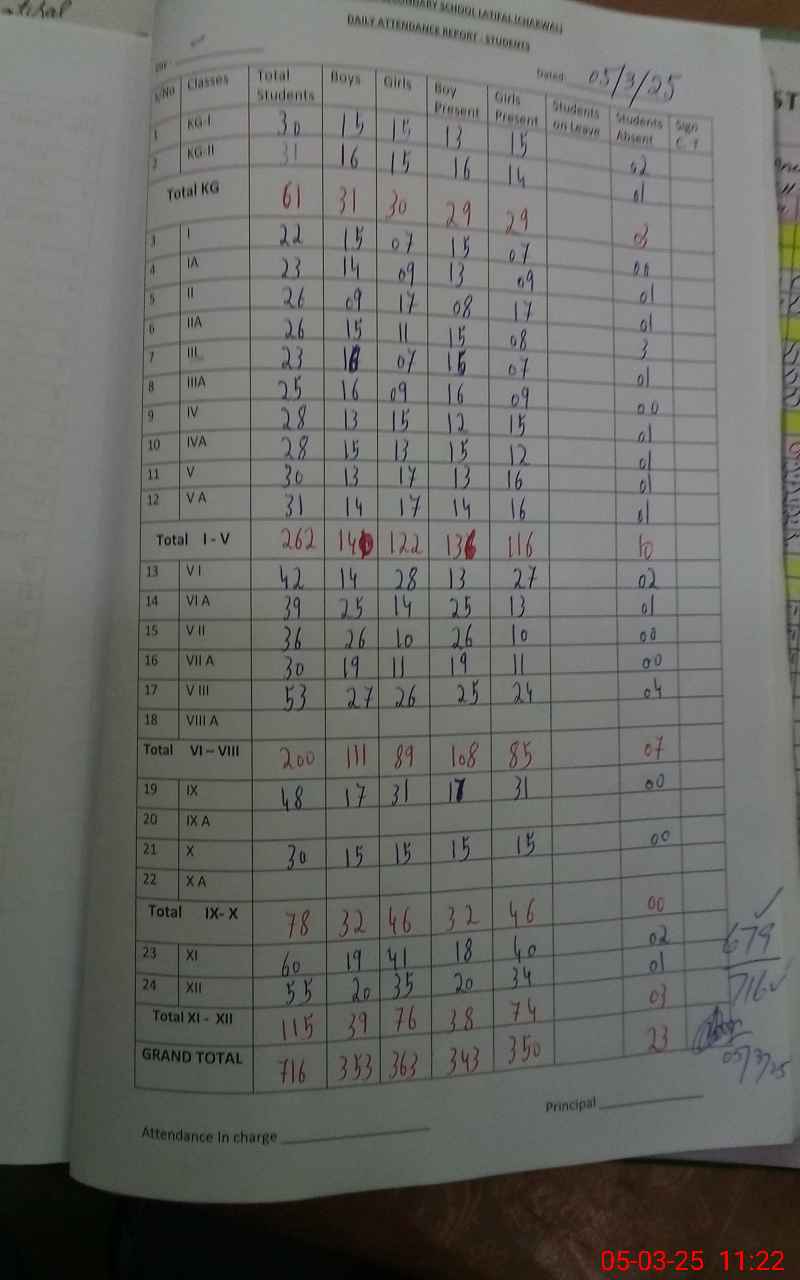 SECONDARY SCHOOL LATIFAL (CHAKWAL)
DAILY ATTENDANCE REPORT - STUDENTS
Dated 05/3/25
S/No Classes Total Students Boys Girls Boy Present Girls Present Students on Leave Students Absent Sign C. T
1 KG-I 30 15 15 13 15 02
2 KG-II 31 16 15 16 14 01
Total KG 61 31 30 29 29 03
3 I 22 15 07 15 07 00
4 IA 23 14 09 13 09 01
5 II 26 09 17 08 17 01
6 IIA 26 15 11 15 08 3
7 III 23 16 07 15 07 01
8 IIIA 25 16 09 16 09 00
9 IV 28 13 15 12 15 01
10 IVA 28 15 13 15 12 01
11 V 30 13 17 13 16 01
12 V A 31 14 17 14 16 01
Total I - V 262 140 122 136 116 10
13 V I 42 14 28 13 27 02
14 VI A 39 25 14 25 13 01
15 V II 36 26 10 26 10 00
16 VII A 30 19 11 19 11 00
17 V III 53 27 26 25 24 04
18 VIII A
Total VI – VIII 200 111 89 108 85 07
19 IX 48 17 31 17 31 00
20 IX A
21 X 30 15 15 15 15 00
22 X A
Total IX- X 78 32 46 32 46 00
23 XI 60 19 41 18 40 02
679
24 XII 55 20 35 20 34 01
716
Total XI - XII 115 39 76 38 74 03
GRAND TOTAL 716 353 363 343 350 23
05/3/25
Attendance In charge
Principal
05-03-25 11:22